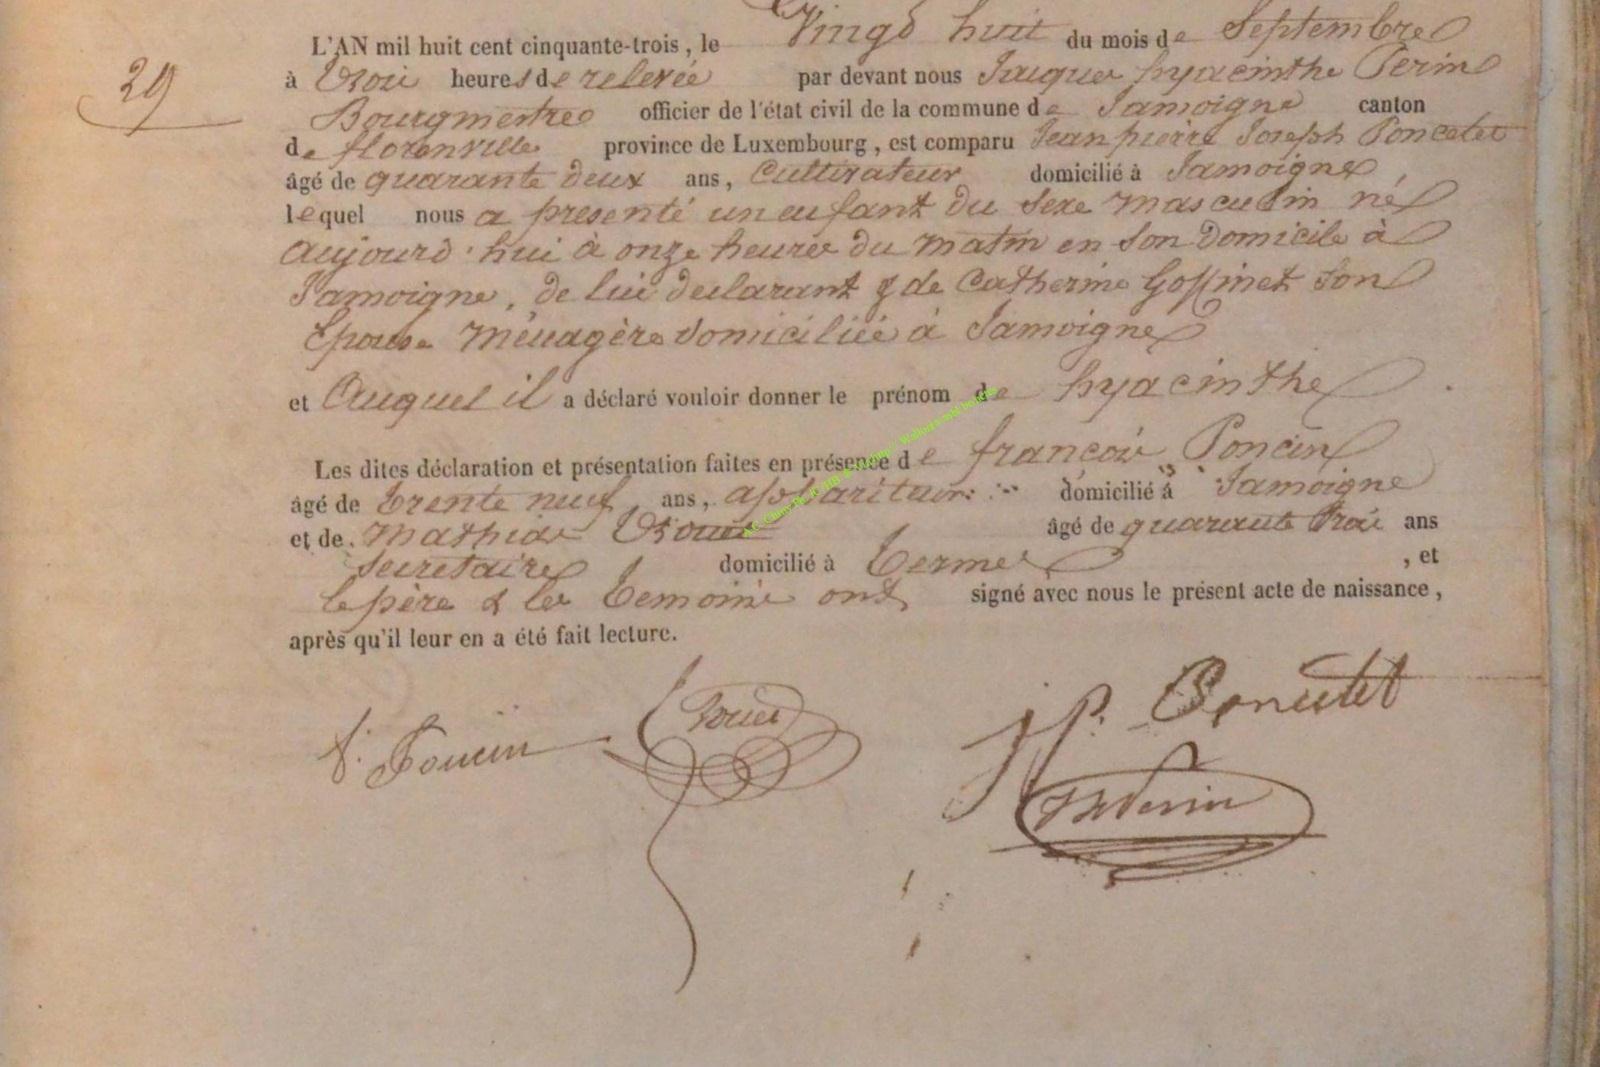 29
L'AN mil huit cent cinquante-trois, le Vingt huit du mois de Septembre
à trois heures de relevée par devant nous Jacques hyacinthe Perin
Bourgmestre officier de l'état civil de la commune de Jamoigne canton
de florenville province de Luxembourg, est comparu Jean pierre Joseph Poncelet
âgé de quarante deux ans, Cultivateur domicilié à Jamoigne,
lequel nous a presenté un enfant du sexe masculin né
aujourd'hui à onze heures du matin en son domicile à
Jamoigne, de lui declarant & de Catherine Goffinet son
Epouse Ménagère domiciliée à Jamoigne
et Auquel il a déclaré vouloir donner le prénom de hyacinthe
Les dites déclaration et présentation faites en présence de françois Poncin
âgé de trente neuf ans, appariteur domicilié à Jamoigne
et de Mathias âgé de quarante trois ans
Secretaire domicilié à Termes, et
le père & les temoins ont signé avec nous le présent acte de naissance,
après qu'il leur en a été fait lecture.
f. Poncin
JP. Poncelet
JHPerin